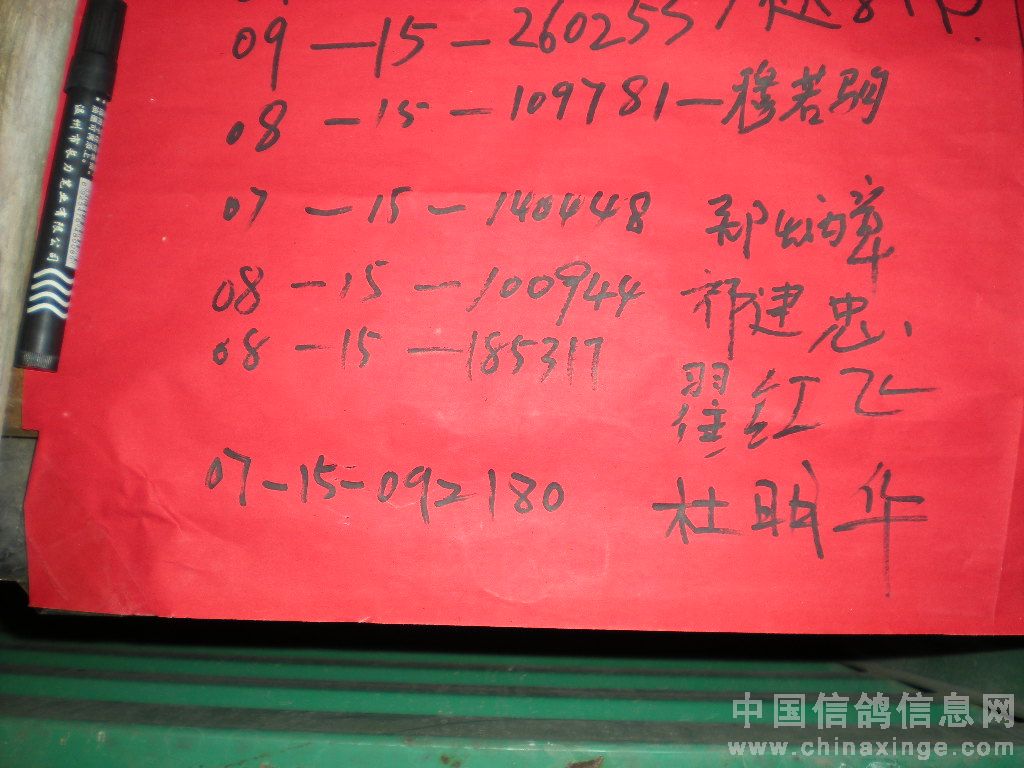 09-15-260253
08-15-109781-穆若驹
07-15-140448 郑炳章
08-15-100944 祁建忠
08-15-185317 翟红飞
07-15-092180 杜明华
中国信鸽信息网
www.chinaxinge.com